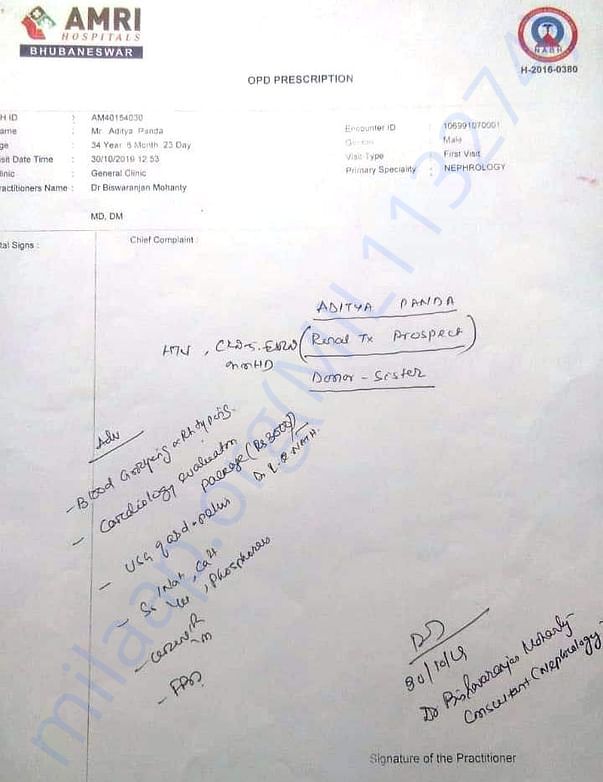 AMRI
HOSPITALS
BHUBANESWAR
NABH
H-2016-0380
OPD PRESCRIPTION
H ID : AM40154030
ame : Mr Aditya Panda
ge : 34 Year 8 Month 23 Day
isit Date Time : 30/10/2019 12:53
linic : General Clinic
ractitioners Name : Dr Biswaranjan Mohanty
MD, DM
Encounter ID : 106991070001
Gender : Male
Visit Type : First Visit
Primary Speciality : NEPHROLOGY
tal Signs :
Chief Complaint :
ADITYA PANDA
HTN, (Renal Tx Prospect)
on MHD
Donor - Sister
Adv
- Blood Grouping & Rh typing.
- Cardiology evaluation
package (Rs 3000)/-
- USG of abd + pelvis
- Sr, Na+, Ca++
, Phosphorus
-
- FBS
30/10/19
Dr Biswaranjan Mohanty
Consultant (Nephrology)
Signature of the Practitioner
milaap.org(MIL113274